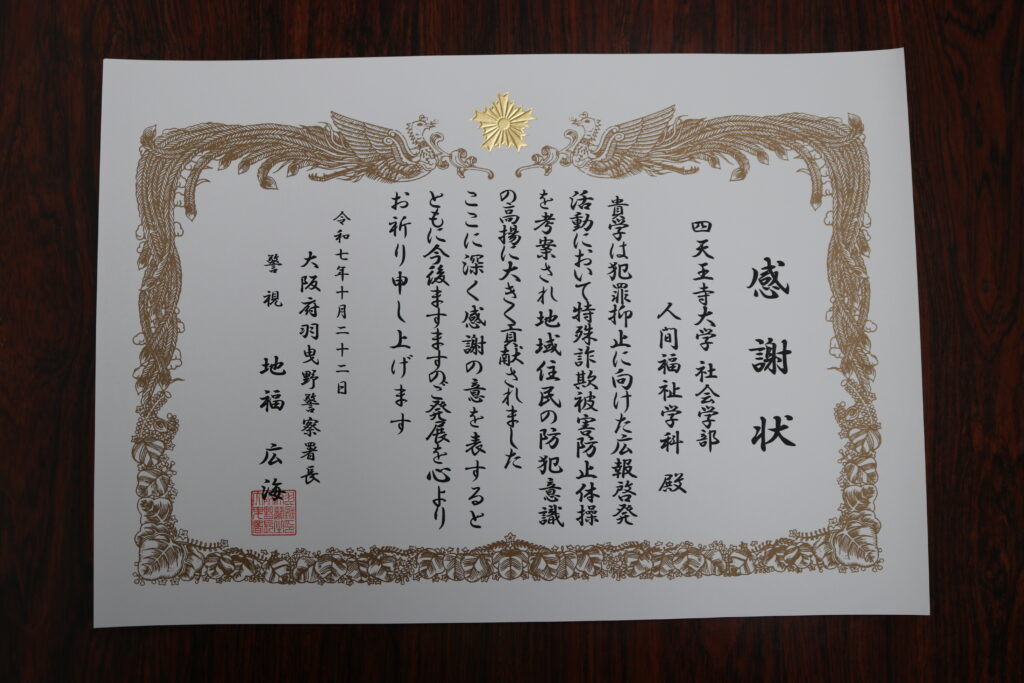 感謝状
四天王寺大学 社会学部
人間福祉学科 殿
貴学は犯罪抑止に向けた広報啓発
活動において特殊詐欺被害防止体操
を考案され地域住民の防犯意識
の高揚に大きく貢献されました
ここに深く感謝の意を表すると
ともに今後ますますのご発展を心より
お祈り申し上げます
令和七年十月二十二日
大阪府羽曳野警察署長
警視 地福 広海